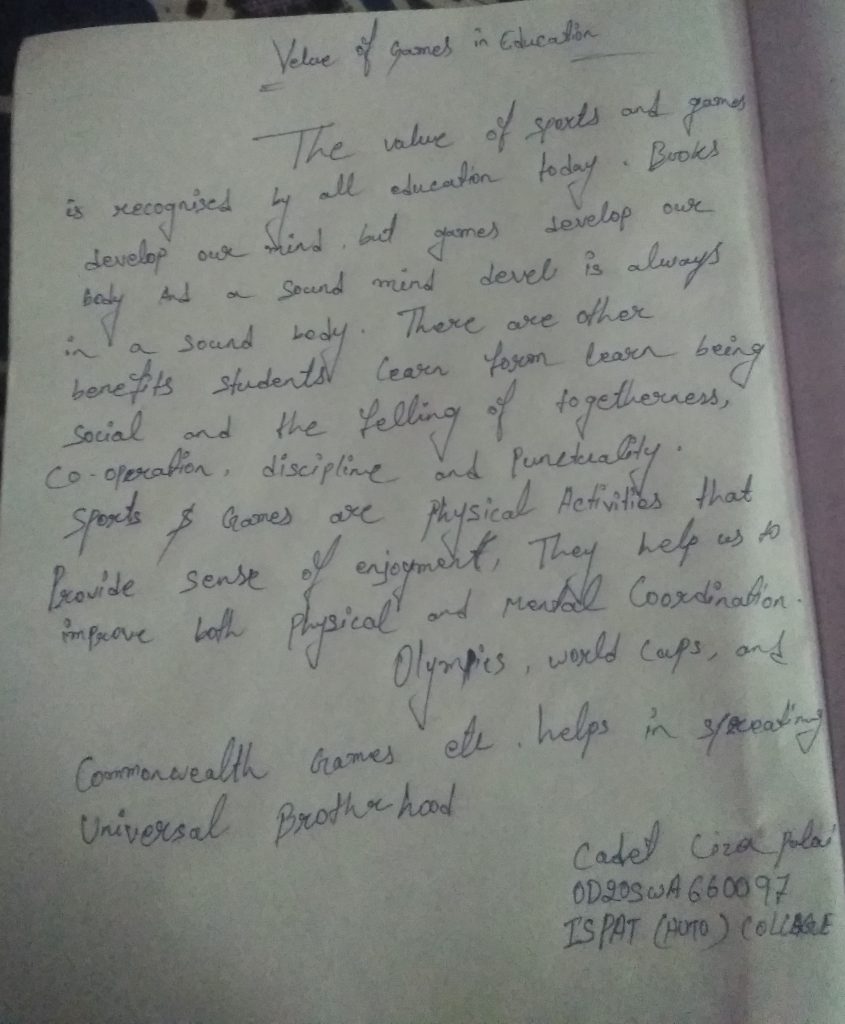 Velue of Games in Education
The value of sports and games
is recognised by all education today. Books
develop our mind. but games develop our
body And a sound mind devel is always
in a sound body. There are other
benefits students learn form learn being
social and the felling of togetherness,
Co-operation, discipline and Punctuality.
Sports & Games are Physical Activities that
Provide sense of enjoyment, They help us to
improve both physical and Mental Coordination.
Olympics, world cups, and
Commonwealth Games etc. helps in spreating
Universal Brotherhood
Cadet
OD20SWA660097
ISPAT (AUTO) COLLEAGUE